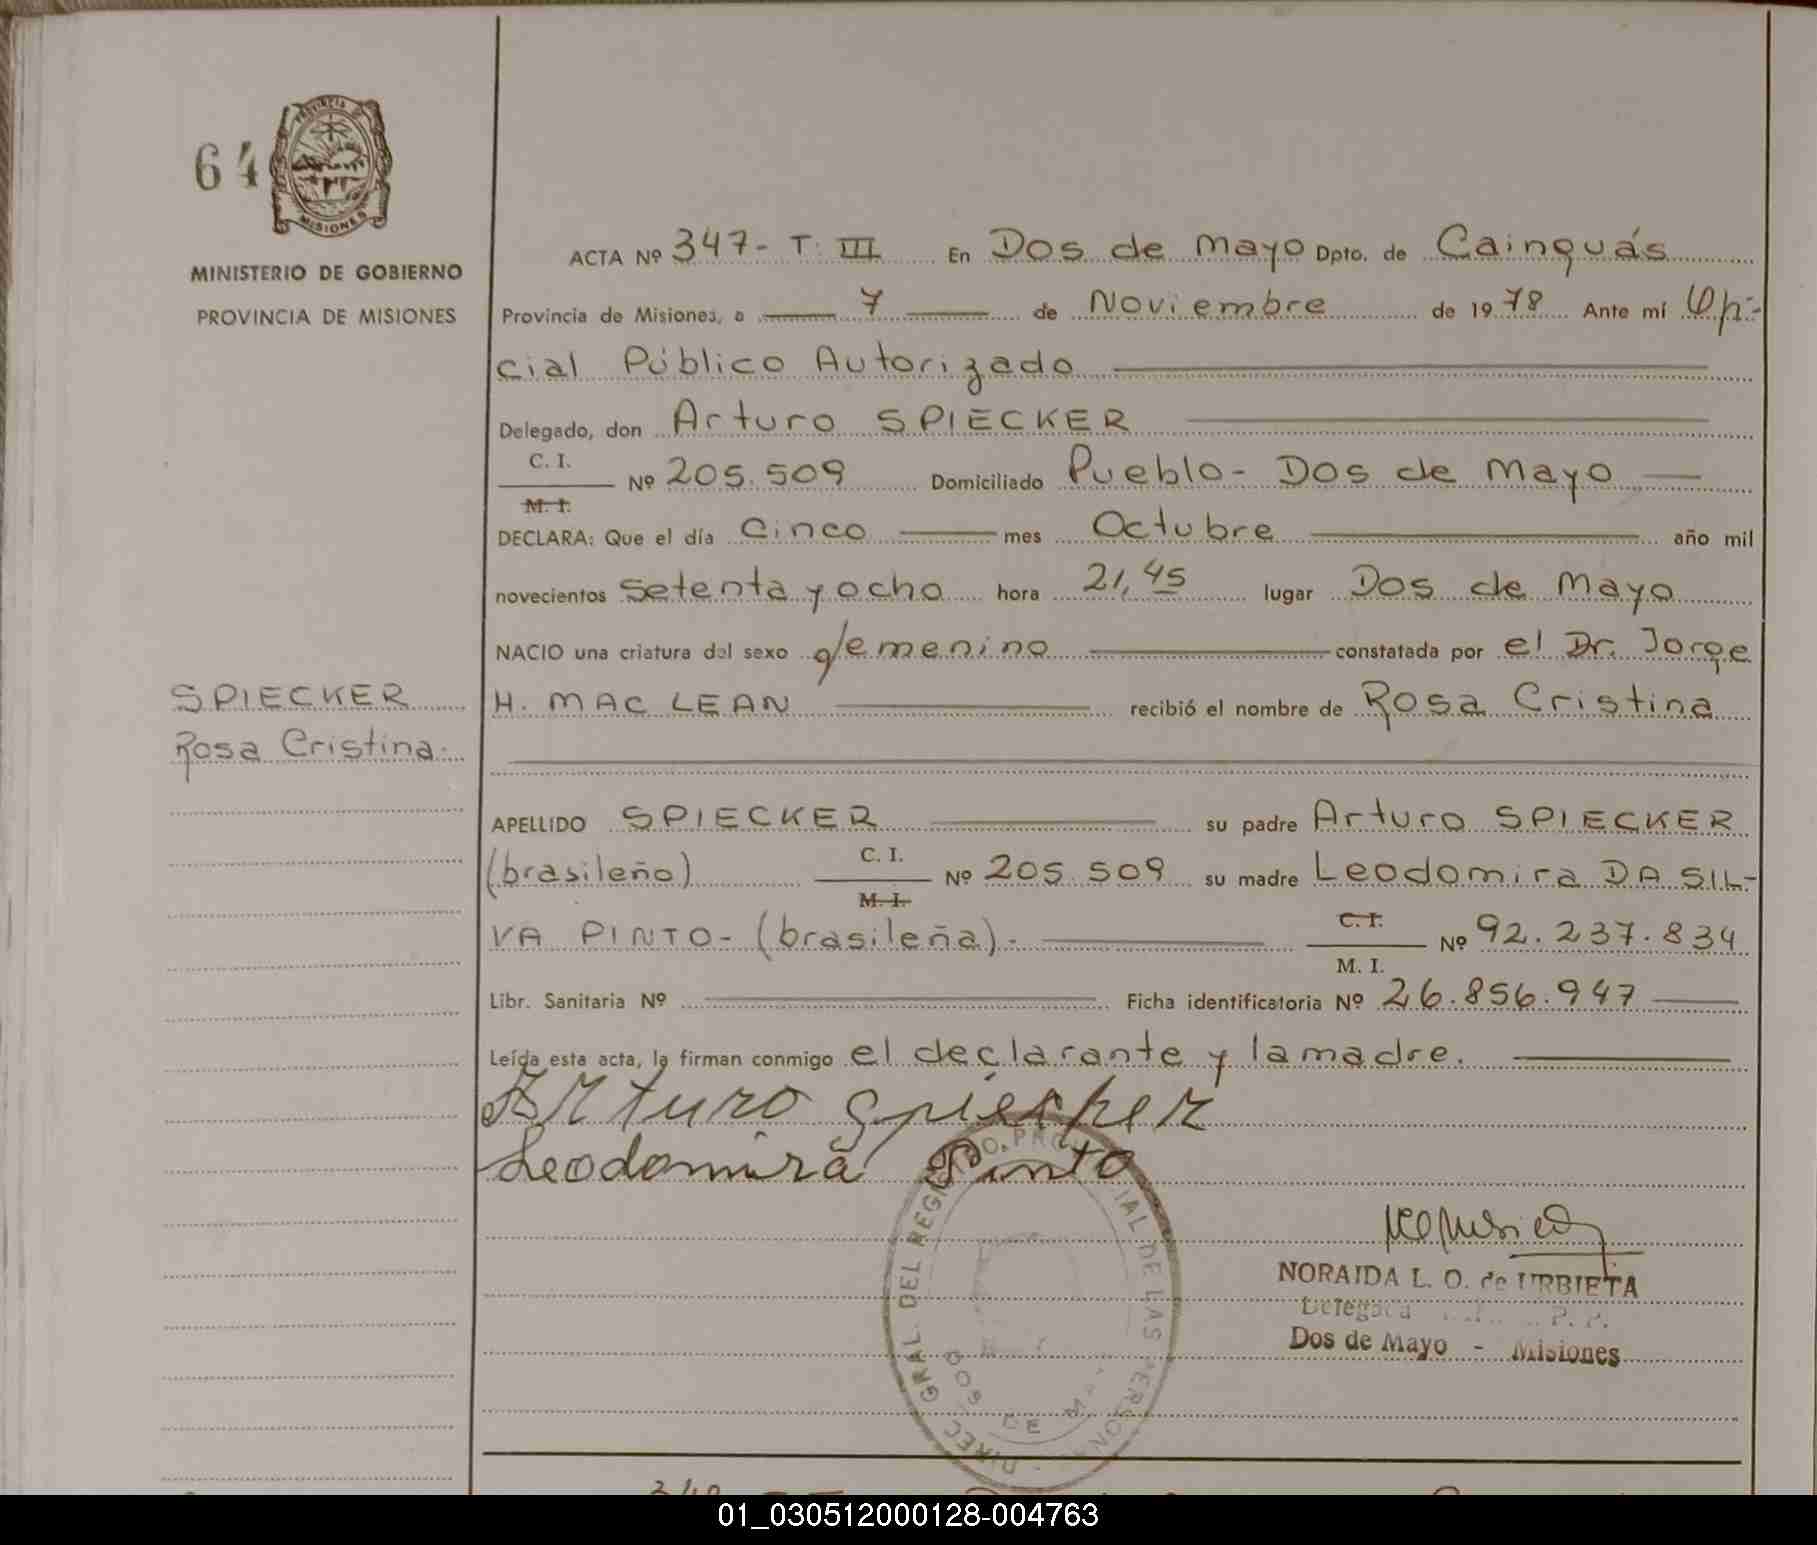 64
PROVINCIA DE
MISIONES
MINISTERIO DE GOBIERNO
PROVINCIA DE MISIONES
SPIECKER
Rosa Cristina
ACTA Nº 347- T. III En Dos de Mayo Dpto. de Cainguás
Provincia de Misiones, a 7 de Noviembre de 1978 Ante mí Ofi-
cial Público Autorizado
Delegado, don Arturo SPIECKER
C. I.
M. I.
Nº 205.509 Domiciliado Pueblo - Dos de Mayo
DECLARA: Que el día Cinco mes Octubre año mil
novecientos setenta y ocho hora 21,45 lugar Dos de Mayo
NACIO una criatura del sexo femenino constatada por el Dr. Jorge
H. MAC LEAN recibió el nombre de Rosa Cristina
APELLIDO SPIECKER su padre Arturo SPIECKER
(brasileño) C. I. M. I. Nº 205.509 su madre Leodomira DA SIL-
VA PINTO - (brasileña).- C. I. M. I. Nº 92.237.834
Libr. Sanitaria Nº Ficha identificatoria Nº 26.856.947
Leída esta acta, la firman conmigo el declarante y la madre.
Arturo Spiecker
Leodomira Pinto
DIREC. GRAL. DEL REGISTRO PROVINCIAL DE LAS PERSONAS
DOS DE MAYO
NORAIDA L. O. de URBIETA
Delegada P. P.
Dos de Mayo - Misiones
01_030512000128-004763